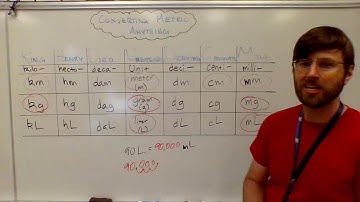 Converting Metric Anything
King Henry Died Drinking Chocolate Milk
kilo- hecto- deca- Unit deci- centi- milli-
km hm dam meter (m) dm cm mm
kg hg dag gram (g) dg cg mg
kL hL daL liter (L) dL cL mL
90 L = 90,000 mL
90,000